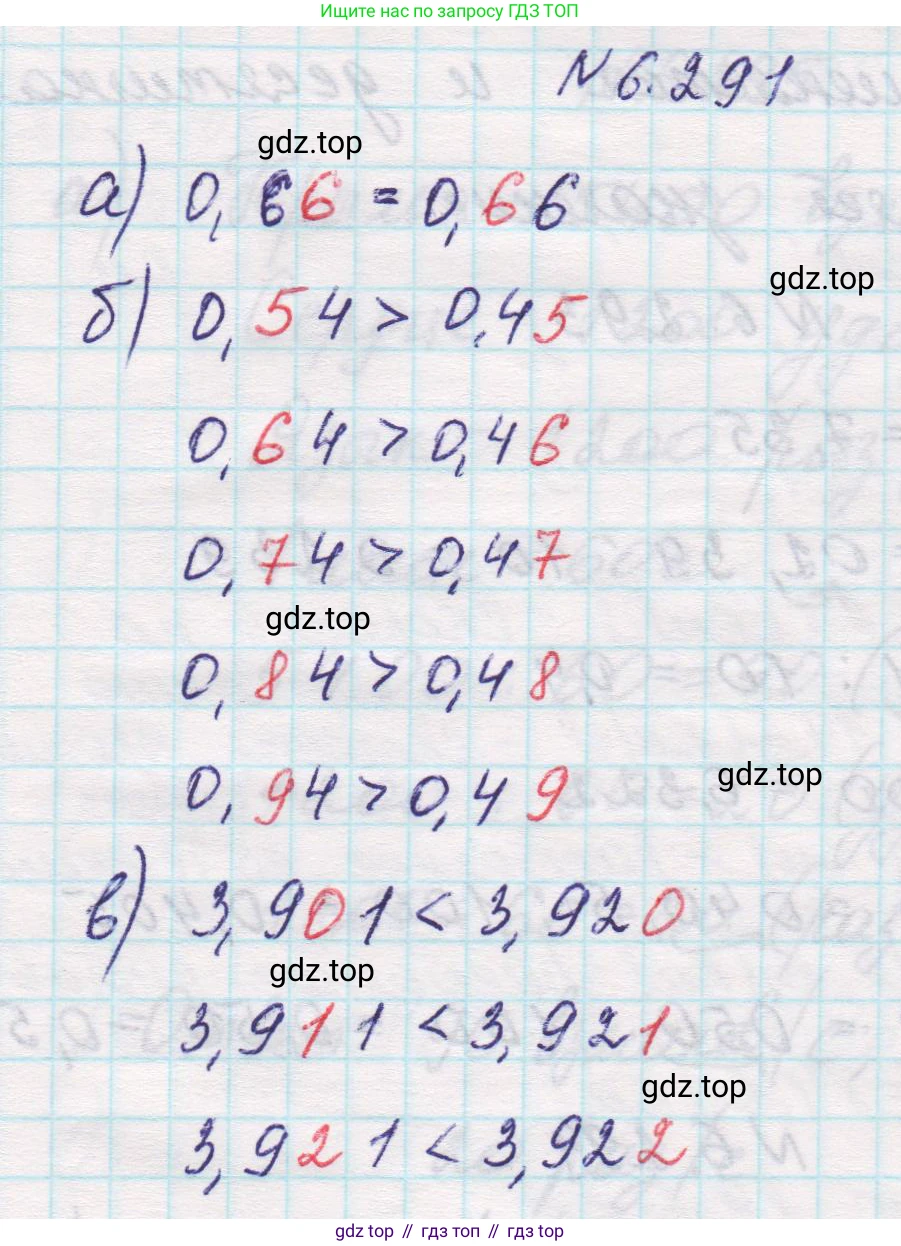 Ищите нас по запросу ГДЗ ТОП
N 6.291
gdz.top
а) 0,66 = 0,66
gdz.top
б) 0,54 > 0,45
0,64 > 0,46
0,74 > 0,47
gdz.top
0,84 > 0,48
gdz.top
0,94 > 0,49
в) 3,901 < 3,920
gdz.top
3,911 < 3,921
gdz.top
3,921 < 3,922
gdz top // гдз топ // gdz top